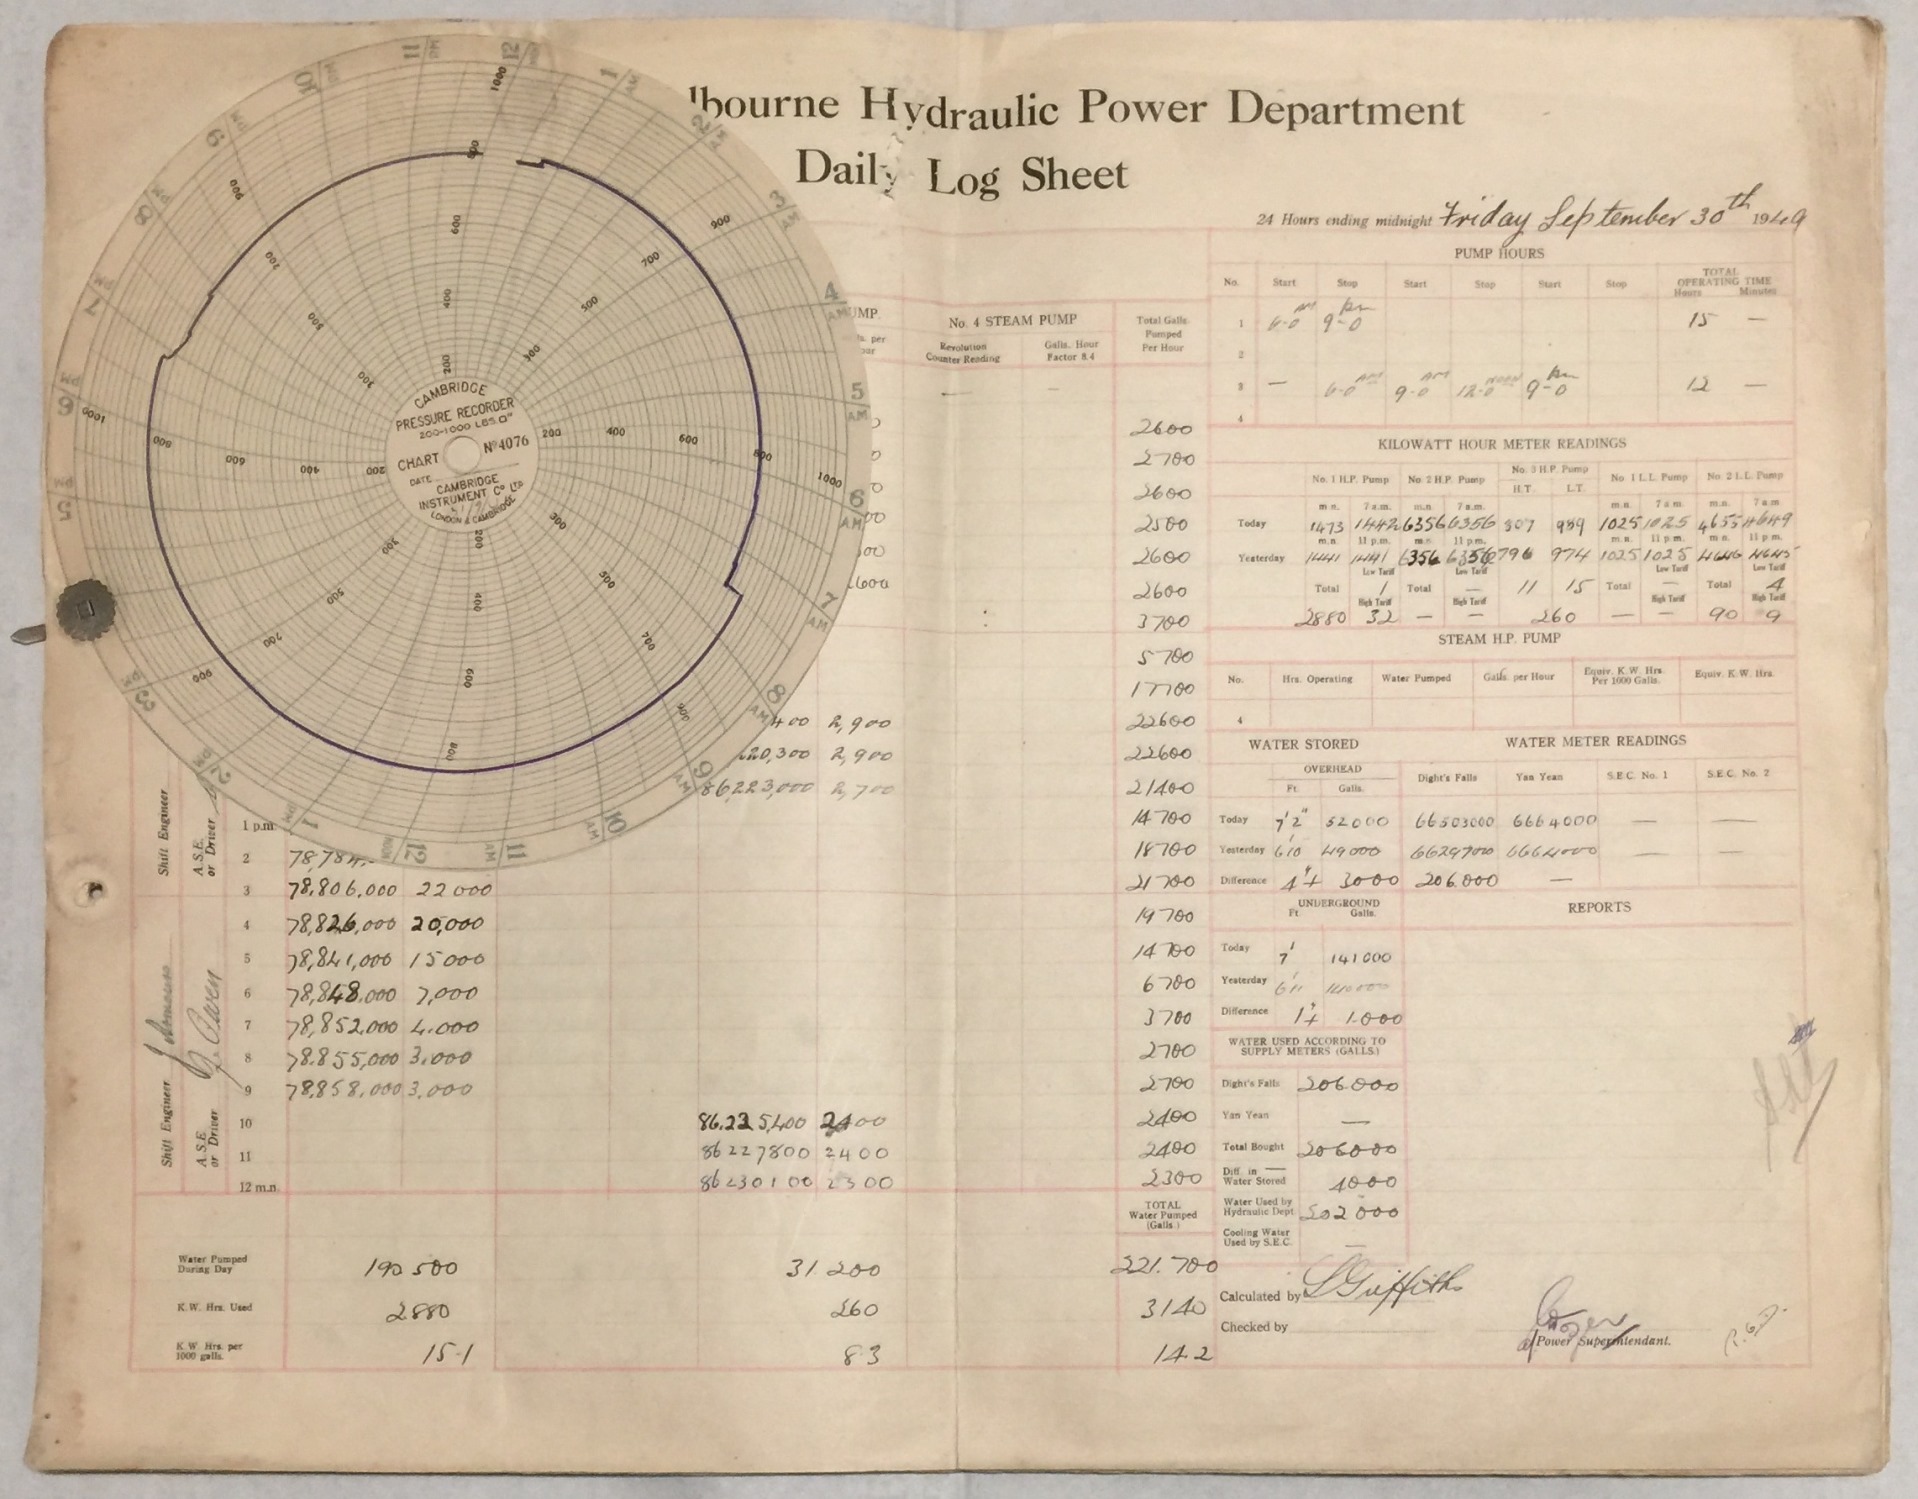 lbourne Hydraulic Power Department
Daily Log Sheet
24 Hours ending midnight Friday September 30th 1949
PUMP HOURS
No. Start Stop Start Stop Start Stop TOTAL OPERATING TIME Hours Minutes
1 6-0 AM 9-0 pm 15 —
2
3 — 6-0 AM 9-0 AM 12-0 NOON 9-0 pm 12 —
4
KILOWATT HOUR METER READINGS
No. 1 H.P. Pump No. 2 H.P. Pump No. 3 H.P. Pump No 1 L.L. Pump No. 2 L.L. Pump
H.T. L.T.
m n. 7 a.m. m.n. 7 a.m. m.n. 7 a.m. m.n. 7 a.m
Today 1473 1442 6356 6356 807 989 1025 1025 4655 4649
m.n. 11 p.m. m.n. 11 p.m. m.n. 11 p.m. m.n. 11 p.m.
Yesterday 1441 1441 6356 6356 796 974 1025 1025 4646 4645
Low Tariff Low Tariff Low Tariff Low Tariff
Total 1 Total — 11 15 Total — Total 4
High Tariff High Tariff High Tariff High Tariff
2880 32 — — 260 — — 90 9
STEAM H.P. PUMP
No. Hrs. Operating Water Pumped Galls. per Hour Equiv. K.W. Hrs. Per 1000 Galls. Equiv. K.W. Hrs.
4
WATER STORED WATER METER READINGS
OVERHEAD
Ft. Galls. Dight's Falls Yan Yean S.E.C. No. 1 S.E.C. No. 2
Today 7'2" 52000 66503000 6664000 — —
Yesterday 6'10 49000 6629700 6664000 — —
Difference 4"+ 3000 206.000 —
UNDERGROUND
Ft. Galls.
REPORTS
Today 7' 141000
Yesterday 6'11 140000
Difference 1"+ 1.000
WATER USED ACCORDING TO
SUPPLY METERS (GALLS.)
Dight's Falls 206.000
Yan Yean —
Total Bought 206000
Diff. in Water Stored — 4000
Water Used by Hydraulic Dept. 202000
Cooling Water Used by S.E.C. —
Calculated by L Griffiths
Checked by
Power Superintendant.
UMP.
No. 4 STEAM PUMP
Revolution Counter Reading
Galls. Hour Factor 8.4
Total Galls. Pumped Per Hour
2600
2700
2600
2500
2600
2600
3700
5700
17700
22600
22600
21400
14700
18700
21700
19700
14700
6700
3700
2700
2700
2400
2400
2300
TOTAL
Water Pumped
(Galls.)
400 2,900
220,300 2,900
86,223,000 2,700
Shift Engineer
A.S.E. or Driver
1 p.m.
2 78,784
3 78,806,000 22000
4 78,826,000 20,000
5 78,841,000 15000
6 78,848.000 7,000
7 78,852.000 4.000
8 78.855,000 3.000
9 78,858.000 3,000
10 86.225,400 2400
11 86227800 2400
12 m.n. 86230100 2300
Shift Engineer
A.S.E. or Driver
Water Pumped During Day 190500 31200 221.700
K.W. Hrs. Used 2880 260 3140
K.W. Hrs. per 1000 galls. 15.1 8.3 14.2
CAMBRIDGE
PRESSURE RECORDER
200-1000 LBS.□"
CHART Nº4076
DATE
CAMBRIDGE
INSTRUMENT Cº LTD
LONDON & CAMBRIDGE
12 1 AM 2 3 AM 4 AM 5 AM 6 AM 7 AM 8 AM 9 AM 10 AM 11 AM 12 NOON 1 PM 2 PM 3 PM 5 PM 6 PM 7 PM 8 PM 9 PM 10 PM 11 PM
1000 800 600 400 200
900 700 500 300
200 400 600 800 1000
300 500 700 900
200 400 600 800
300 500 700 900
200 400 600 800 1000
300 500 700 900